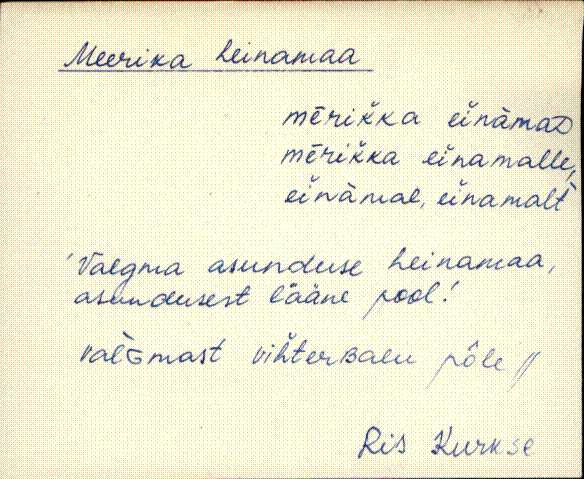 Meerika heinamaa
mērikka einämaD
mērikka einamalle,
einämal, einamalt
'Valgma asunduse heinamaa,
asundusest lääne pool!
valGmast vihterBalu pōle //
Ris Kurkse